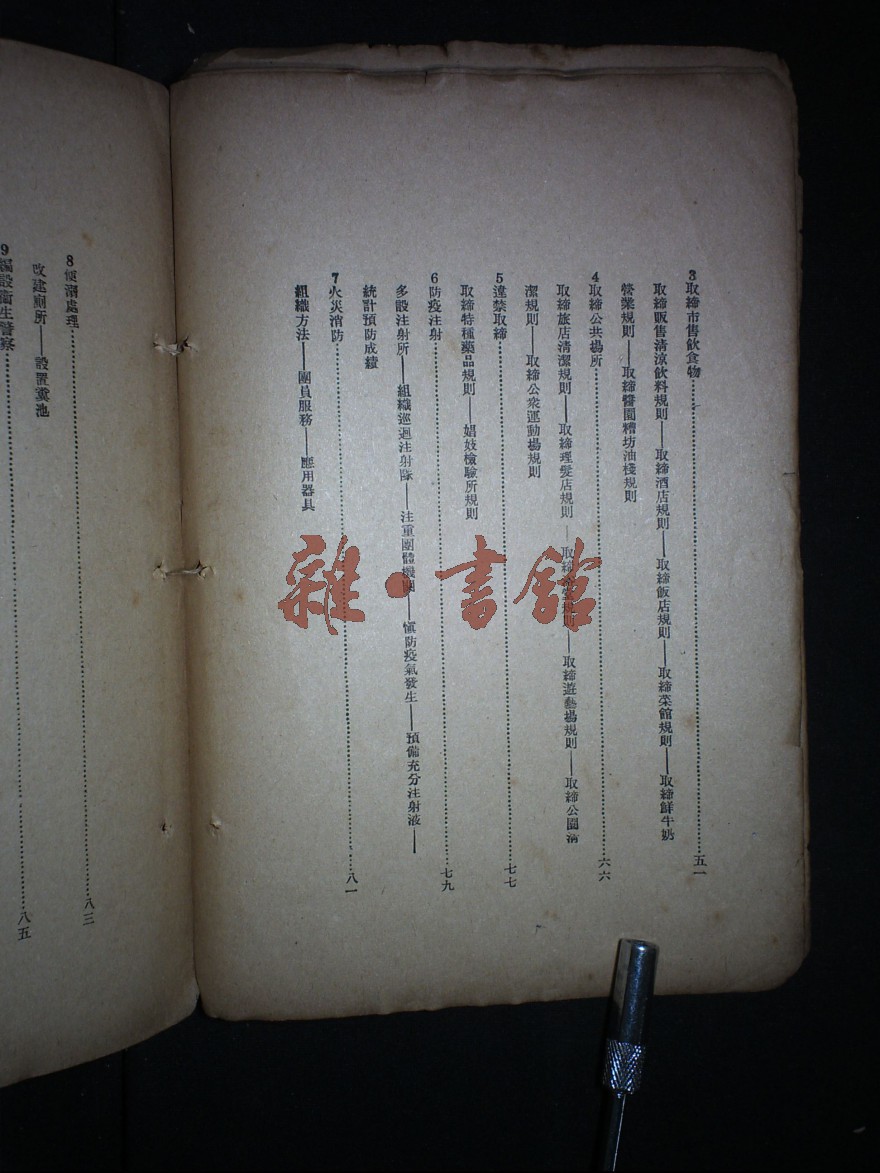 3 取締市售飲食物……五一
取締販售清涼飲料規則——取締酒店規則——取締飯店規則——取締菜館規則——取締鮮牛奶
營業規則——取締醬園糟坊油棧規則
4 取締公共場所……六六
取締旅店清潔規則——取締理髮店規則——取締浴堂規則——取締遊藝場規則——取締公園清
潔規則——取締公衆運動場規則
5 違禁取締……七七
取締特種藥品規則——娼妓檢驗所規則
6 防疫注射……七九
多設注射所——組織巡迴注射隊——注重團體機關——愼防疫氣發生——預備充分注射液——
統計預防成績
7 火災消防……八一
組織方法——團員服務——應用器具
8 便溺處理……八三
改建厠所——設置糞池
9 編設衛生警察……八五
雜·書館